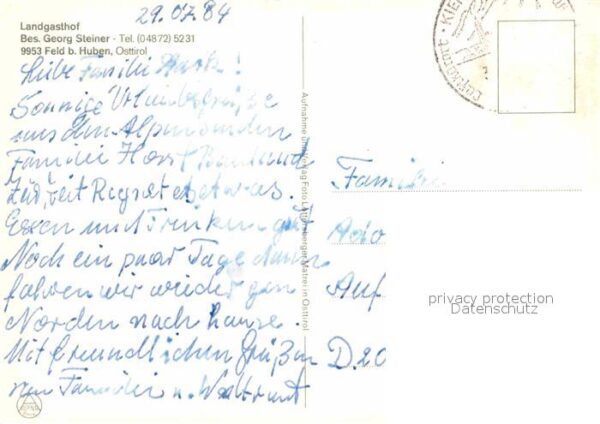 29.07.84
Landgasthof
Bes. Georg Steiner - Tel. (04872) 5231
9953 Feld b. Huben, Osttirol
Liebe Familie !
Sonnige Urlaubsgrüße
aus den Alpen senden
Familie Horst
Zur Zeit Regnet es etwas.
Essen und Trinken gut
Noch ein paar Tage dann
fahren wir wieder gen
Norden nach hause.
Mit freundlichen Grüßen
von Familie u. Waltraut
Aufnahme und Verlag Foto Lottersberger, Matrei in Osttirol
Familie
Ado
Auf
D.20
privacy protection
Datenschutz